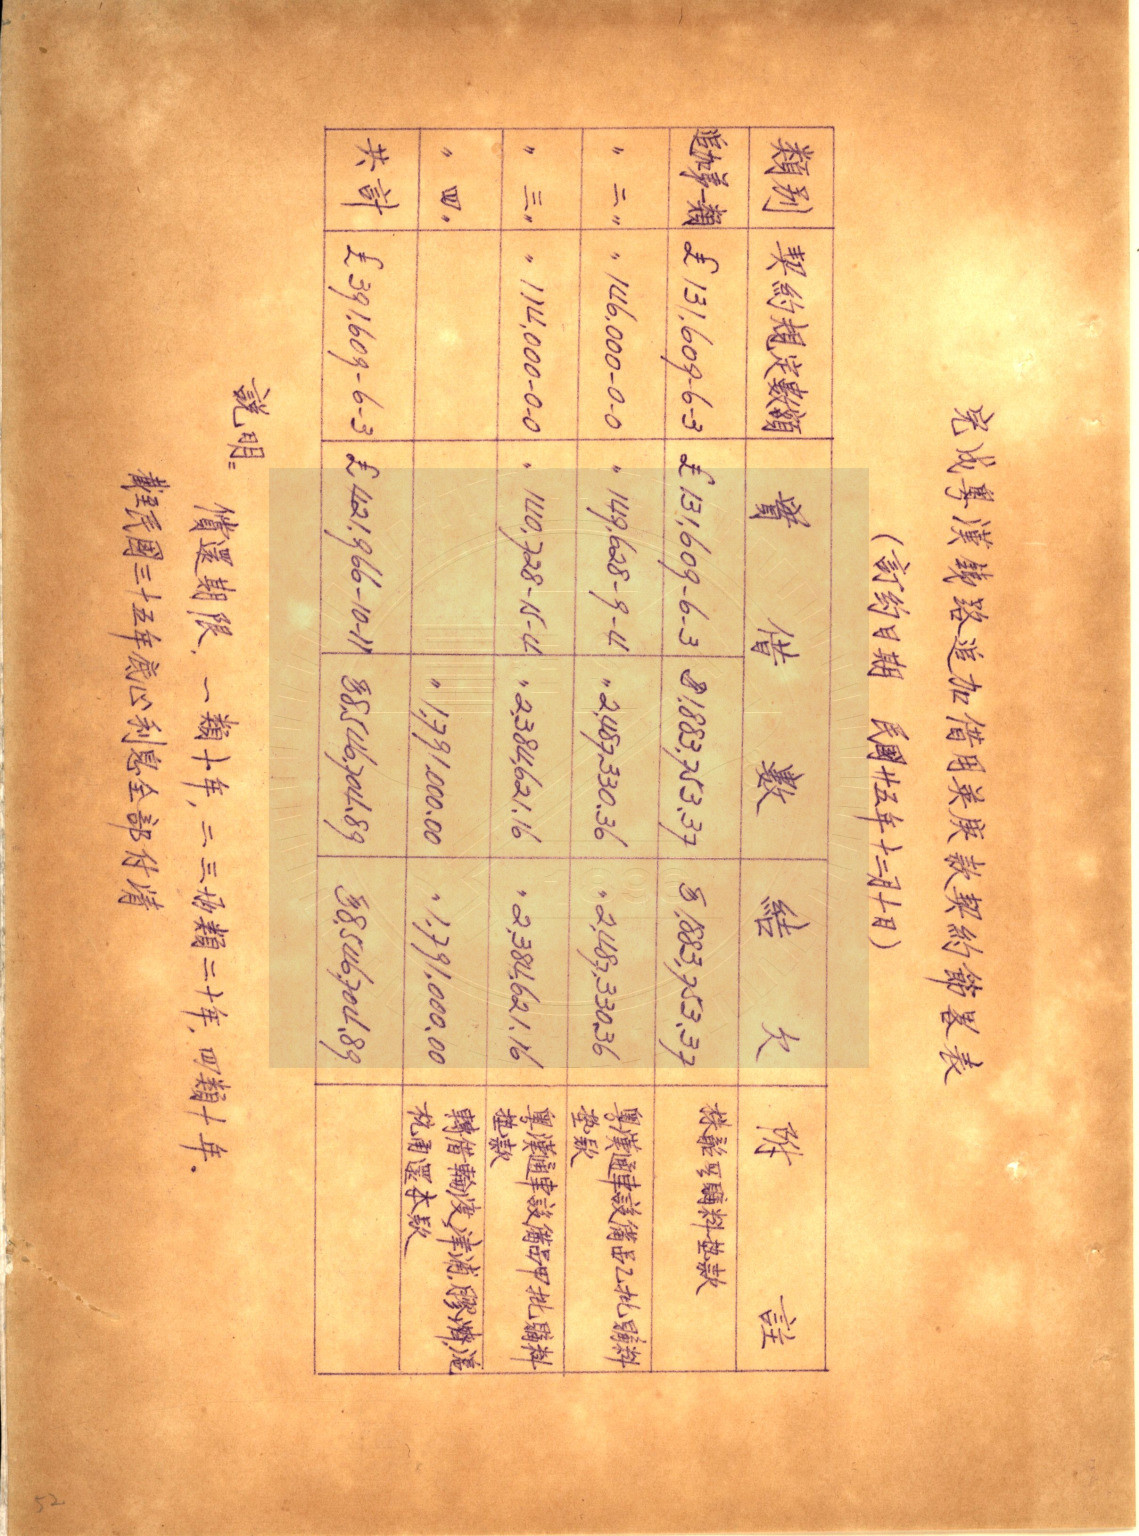 完成粵漢鐵路追加借用英庚款契約節畧表
（訂約日期 民國廿五年十二月十日）
類別 契約規定數額 實借數 結欠 附註
追加第一類 £131,609-6-3 £131,609-6-3 $1,883,753.37 $1,883,753.37 株韶段購料墊款
〃二〃 〃146,000-0-0 〃149,628-9-4 〃2,487,330.36 〃2,487,330.36 粵漢通車設備品乙批購料墊款
〃三〃 〃114,000-0-0 〃140,728-15-4 〃2,384,621.16 〃2,384,621.16 粵漢通車設備品甲批購料墊款
〃四〃 〃1,791,000.00 〃1,791,000.00 轉借輪渡津浦膠濟滬杭甬還本款
共計 £391,609-6-3 £421,966-10-11 $8,546,704.89 $8,546,704.89
説明：
償還期限，一類十年，二三兩類二十年，四類十年。
截至民國三十五年底止利息全部付清
52